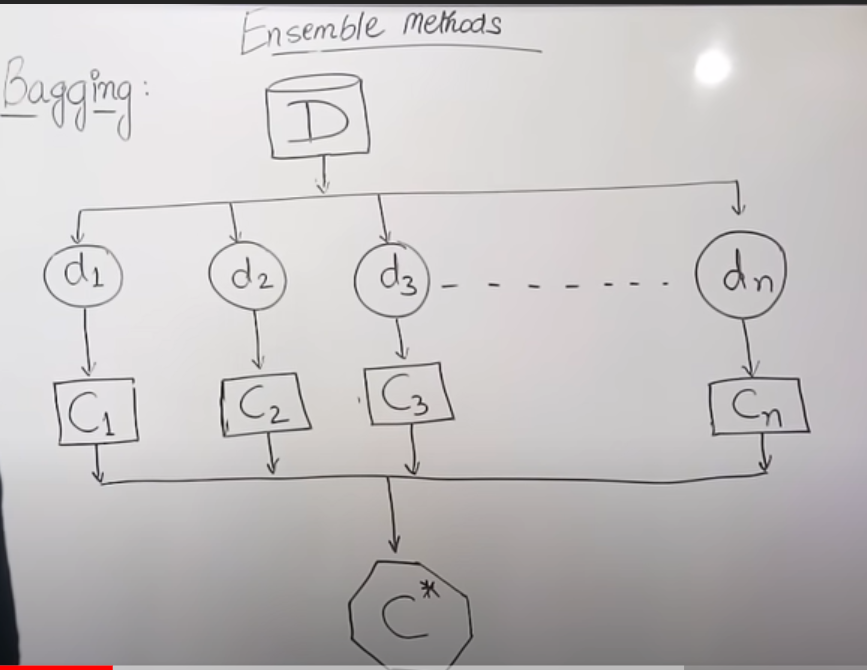 Ensemble methods
Bagging:
D
d1 d2 d3 - - - - - - - dn
C1 C2 C3 Cn
C*